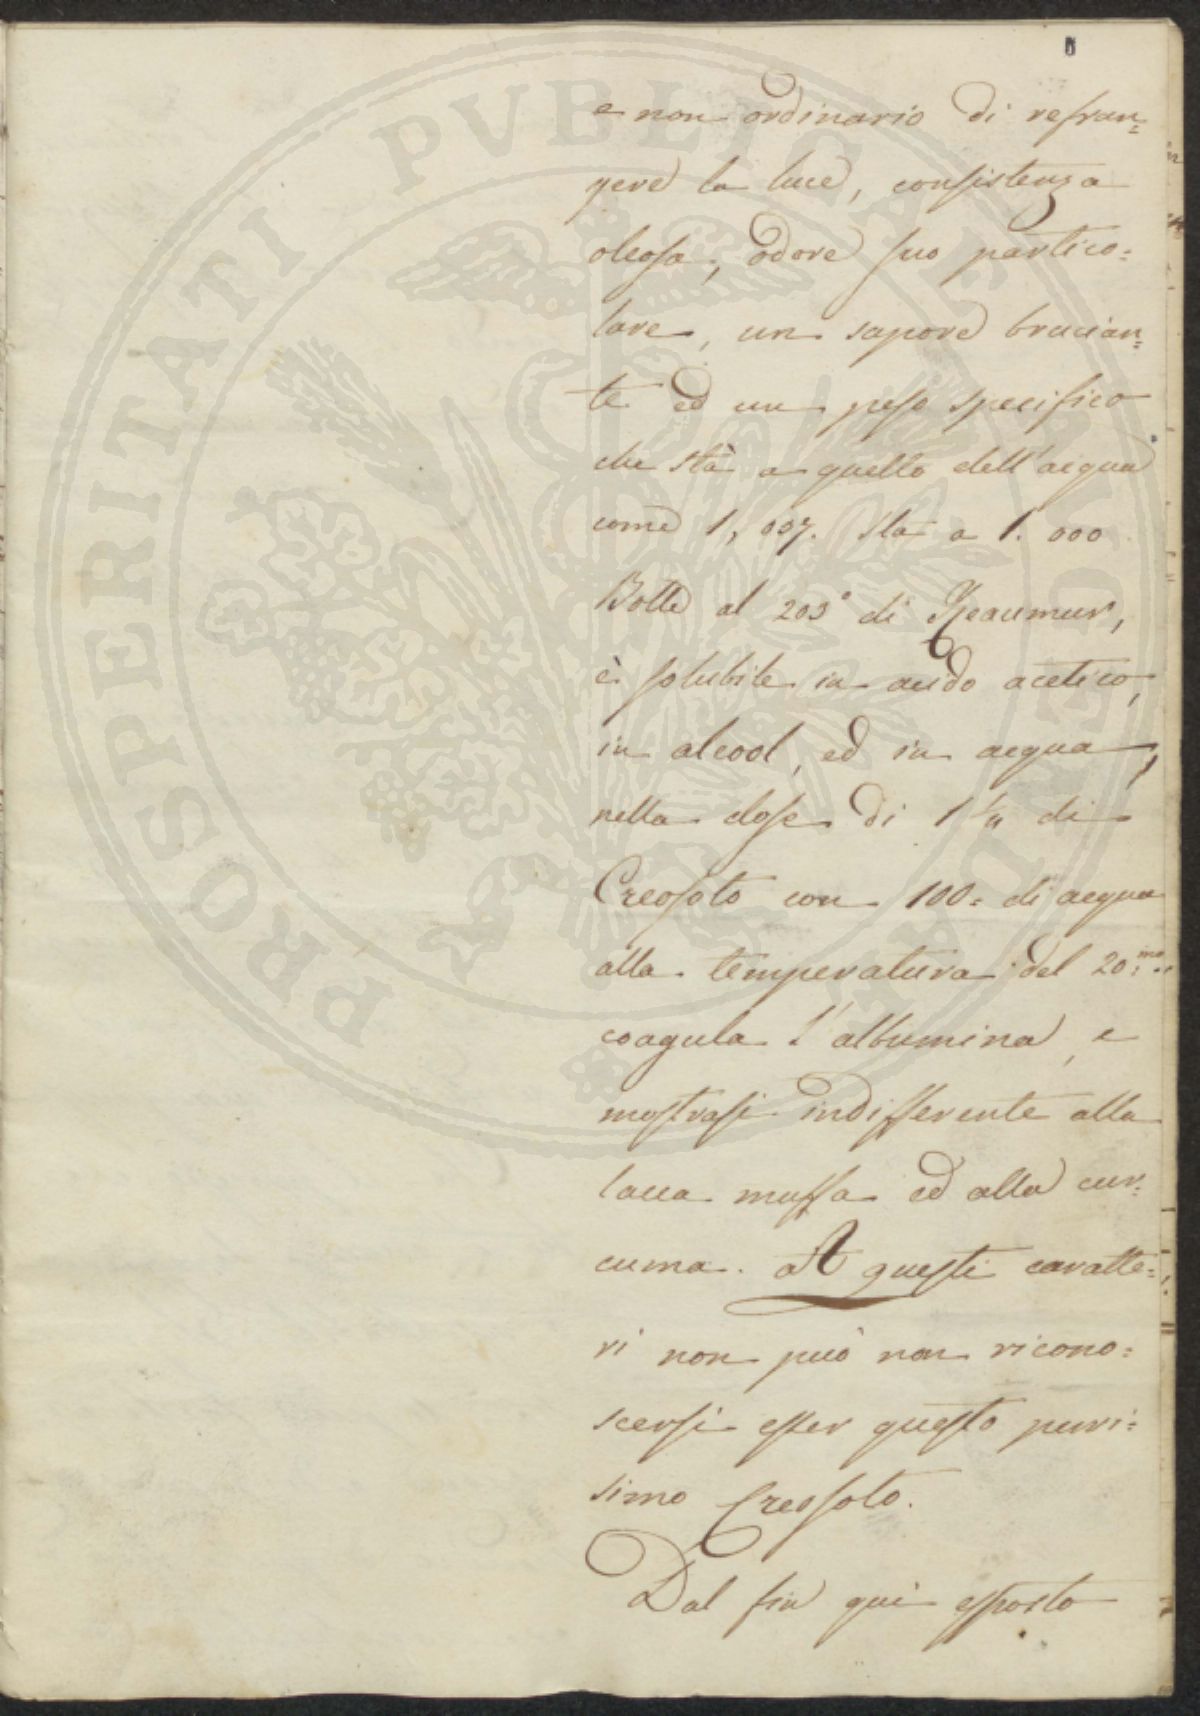 e non ordinario di refran=
gere la luce, consistenza
oleosa, odore suo partico=
lare, un sapore brucian=
te ed un peso specifico
che stà a quello dell'acqua
come 1,037. sta a 1.000
Bolle al 203° di Reaumur,
è solubile in acido acetico,
in alcool, ed in acqua,
nella dose di 1 1/4 di
Creosoto con 100= di acqua
alla temperatura del 20:mo.
coagula l'albumina, e
mostrasi indifferente alla
lacca muffa ed alla cur=
cuma. A questi caratte=
ri non può non ricono=
scersi esser questo puri=
simo Creosoto.
Dal fin quì esposto
PROSPERITATI PVBLICAE AVGENDAE